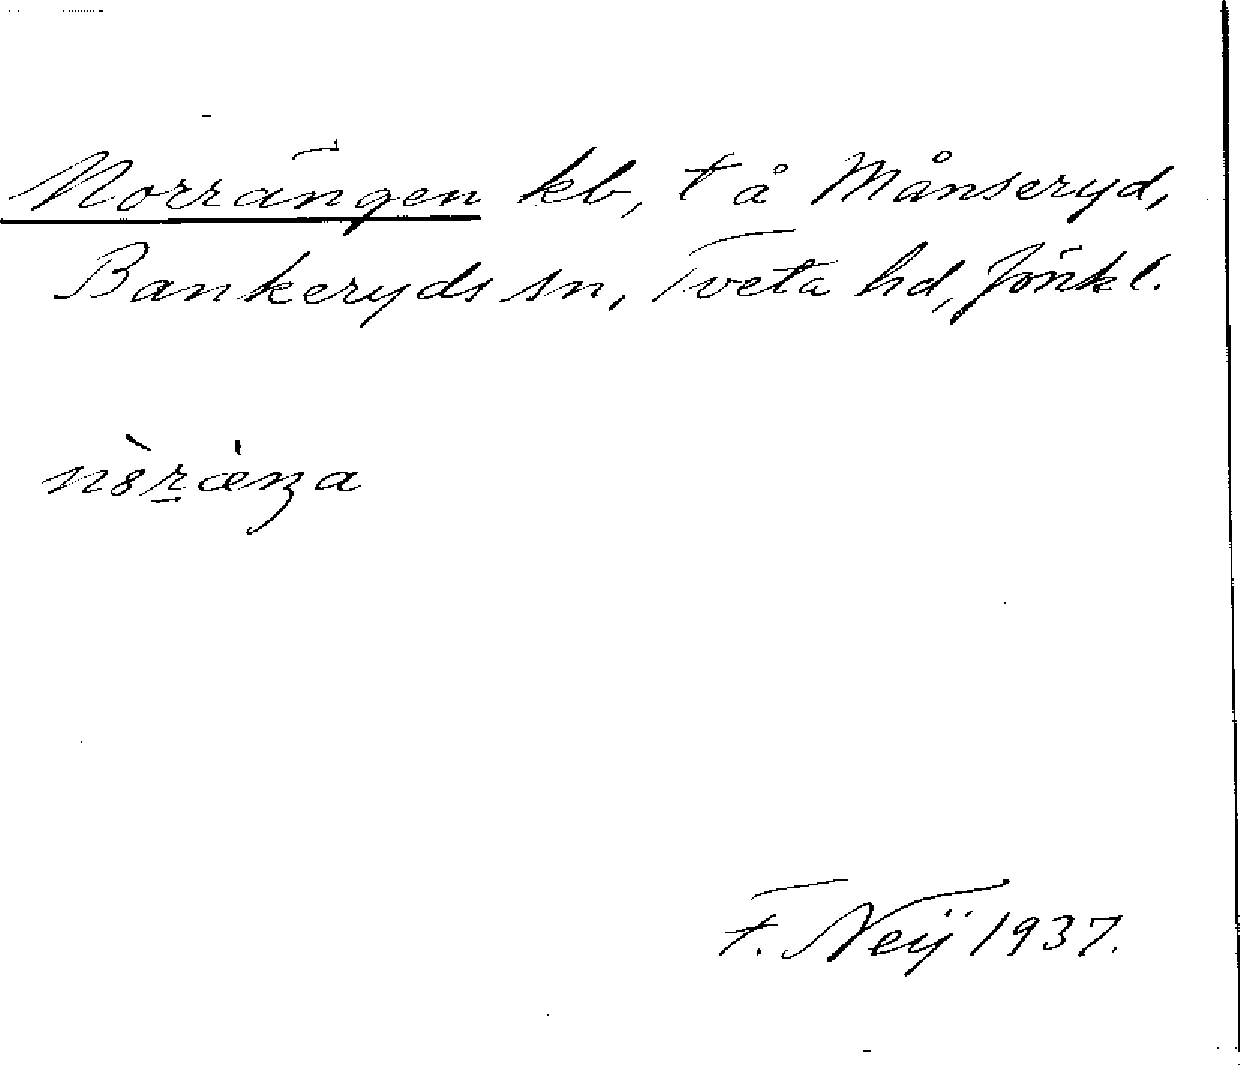 Norrängen kb, t å Månseryd,
Bankeryds sn, Tveta hd, Jönkl.
nòr̲æ̍ŋa
F. Neij 1937.